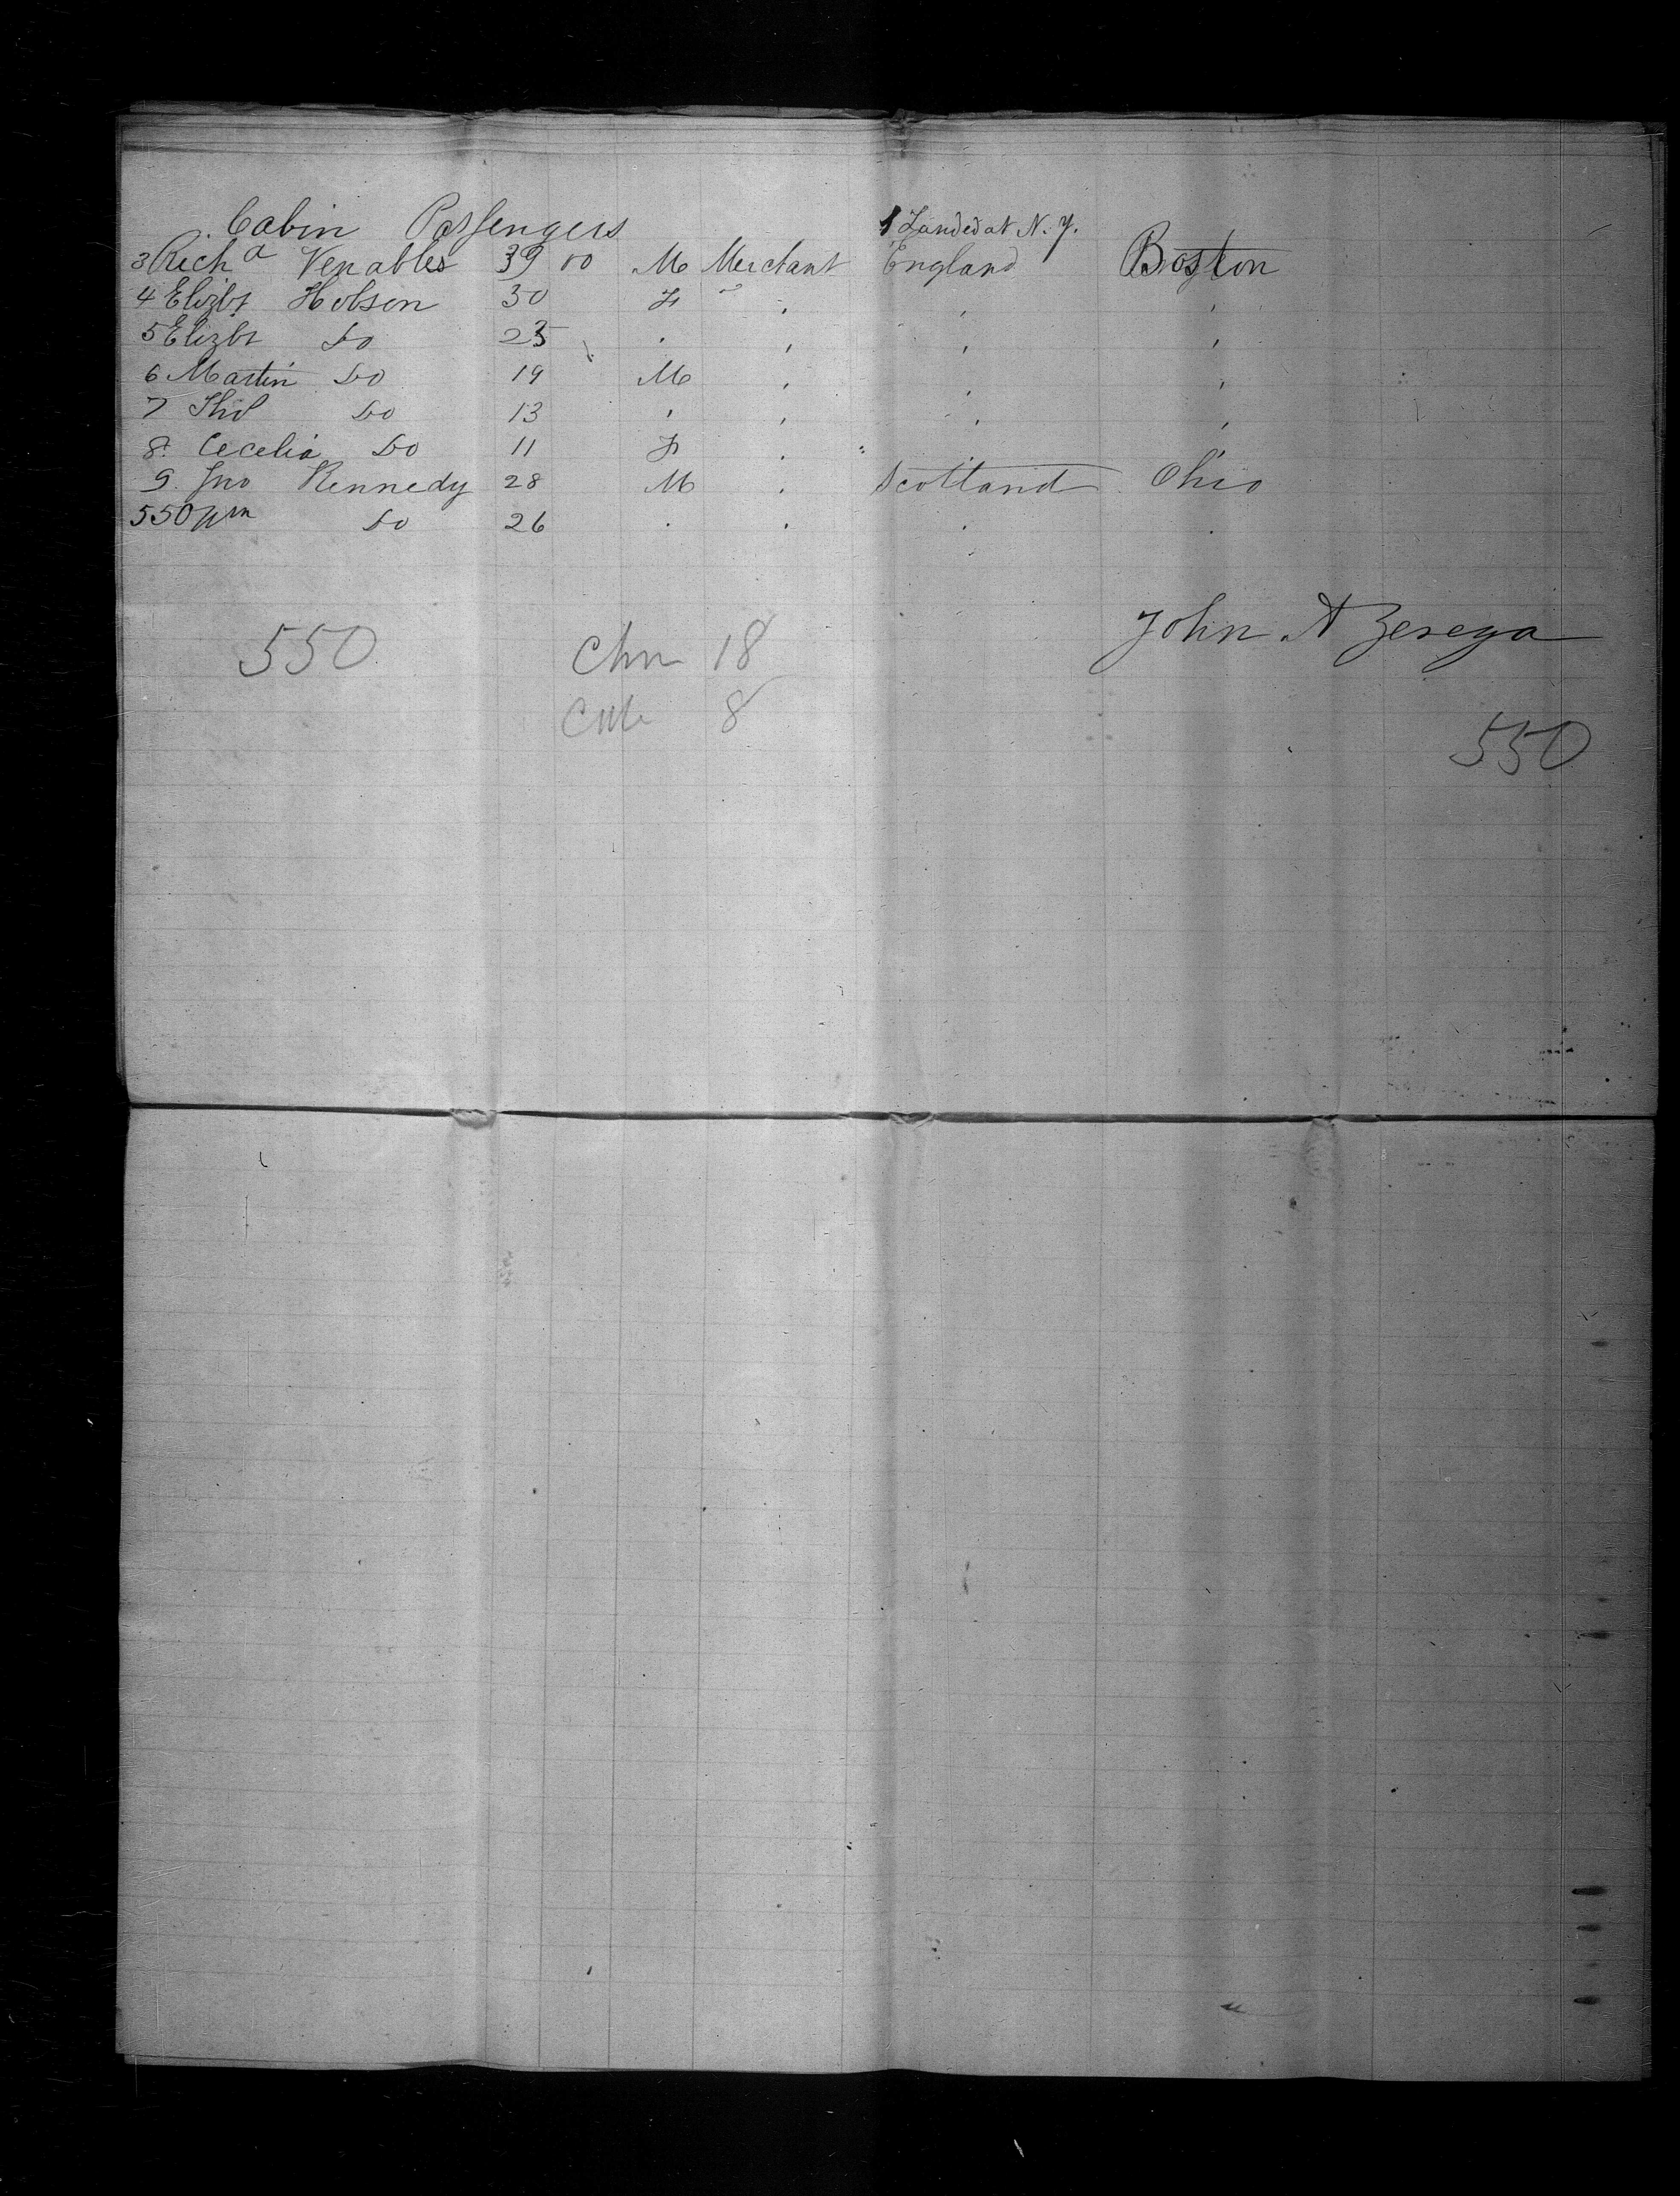 Cabin Passengers Landed at N. Y.
3 Richd Venables 39 00 M Merchant England Boston
4 Elizbt Hobson 30 F " " " "
5 Elizbt Do 25 " " " "
6 Martin Do 19 M " " "
7 Do 13 " " " "
8 Cecelia Do 11 F " " "
9 Jno Kennedy 28 M " Scotland Ohio
550 Wm Do 26 " " " "
John A Zerega
550 Chn 18
8
550